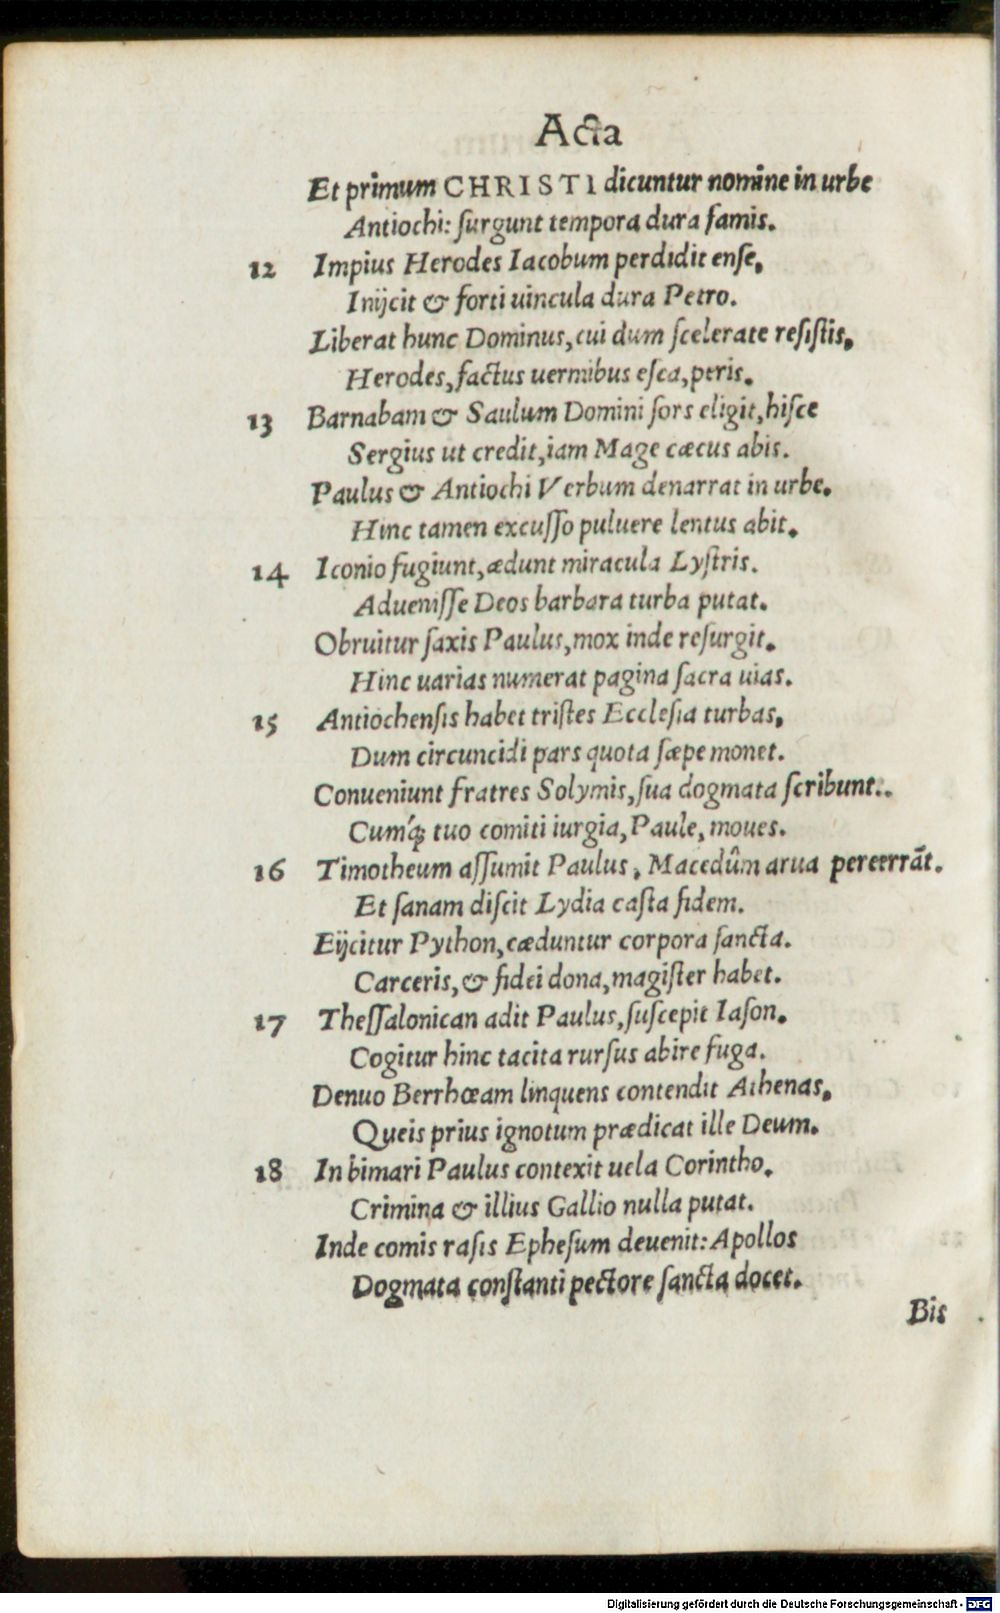 Acta
Et primum CHRISTI dicuntur nomine in urbe
Antiochi: ſurgunt tempora dura famis.
12 Impius Herodes Iacobum perdidit enſe,
Inijcit & forti uincula dura Petro.
Liberat hunc Dominus, cui dum ſcelerate reſiſtis,
Herodes, factus uermibus eſca, peris.
13 Barnabam & Saulum Domini ſors eligit, hiſce
Sergius ut credit, iam Mage cæcus abis.
Paulus & Antiochi Verbum denarrat in urbe.
Hinc tamen excuſſo puluere lentus abit.
14 Iconio fugiunt, ædunt miracula Lyſtris.
Adueniſſe Deos barbara turba putat.
Obruitur ſaxis Paulus, mox inde reſurgit.
Hinc uarias numerat pagina ſacra uias.
15 Antiochenſis habet triſtes Eccleſia turbas,
Dum circuncidi pars quota ſæpe monet.
Conueniunt fratres Solymis, ſua dogmata ſcribunt..
Cumq́; tuo comiti iurgia, Paule, moues.
16 Timotheum aſſumit Paulus, Macedûm arua pererrãt.
Et ſanam diſcit Lydia caſta fidem.
Eijcitur Python, cæduntur corpora ſancta.
Carceris, & fidei dona, magiſter habet.
17 Theſſalonican adit Paulus, ſuſcepit Iaſon.
Cogitur hinc tacita rurſus abire fuga.
Denuo Berrhœam linquens contendit Athenas,
Queis prius ignotum prædicat ille Deum.
18 In bimari Paulus contexit uela Corintho.
Crimina & illius Gallio nulla putat.
Inde comis raſis Epheſum deuenit: Apollos
Dogmata conſtanti pectore ſancta docet.
Bis
Digitalisierung gefördert durch die Deutsche Forschungsgemeinschaft - DFG